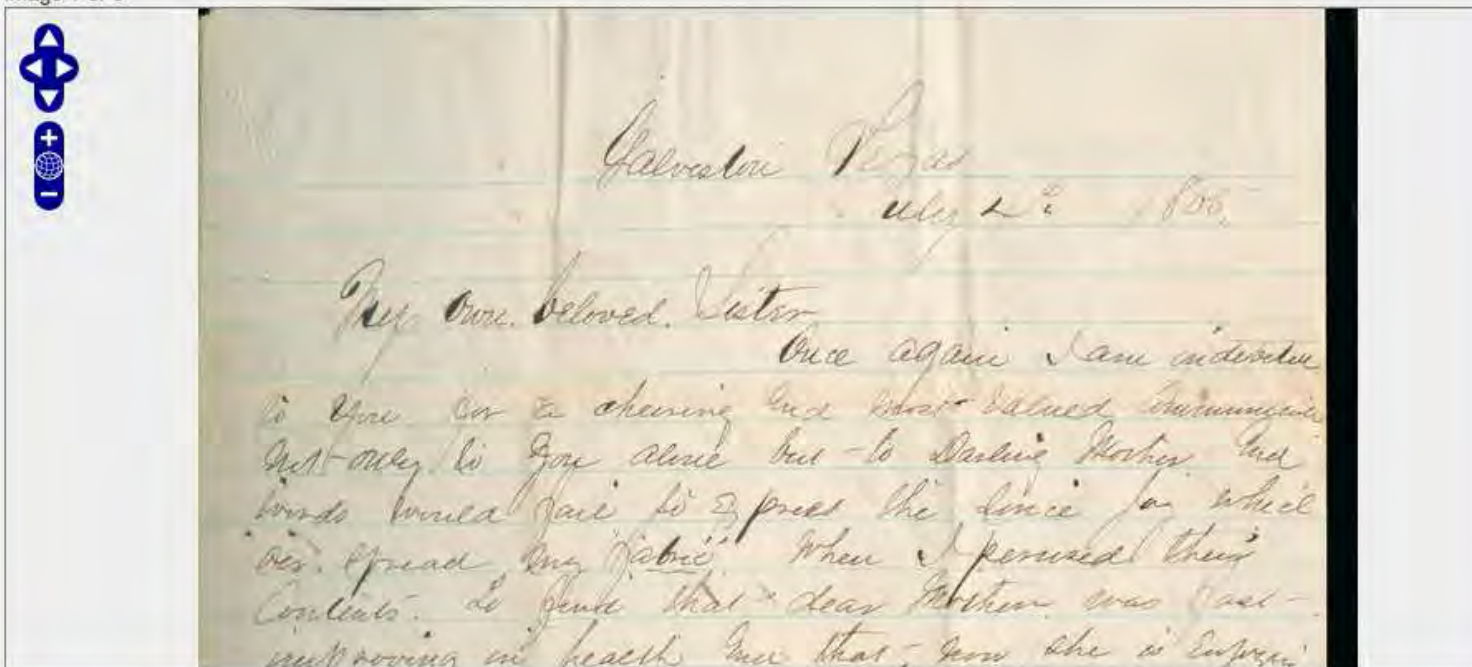 Galveston Texas
July 2d 186
My own beloved Sister
Once again I am indebted
to you for a cheering and most valued
Not only to you alone but to Darling Mother and
words would fail to Express the joy which
over spread my "fabric" when I perused their
Contents. To find that dear Mother was fast
improving in health and that now she is Enjoying